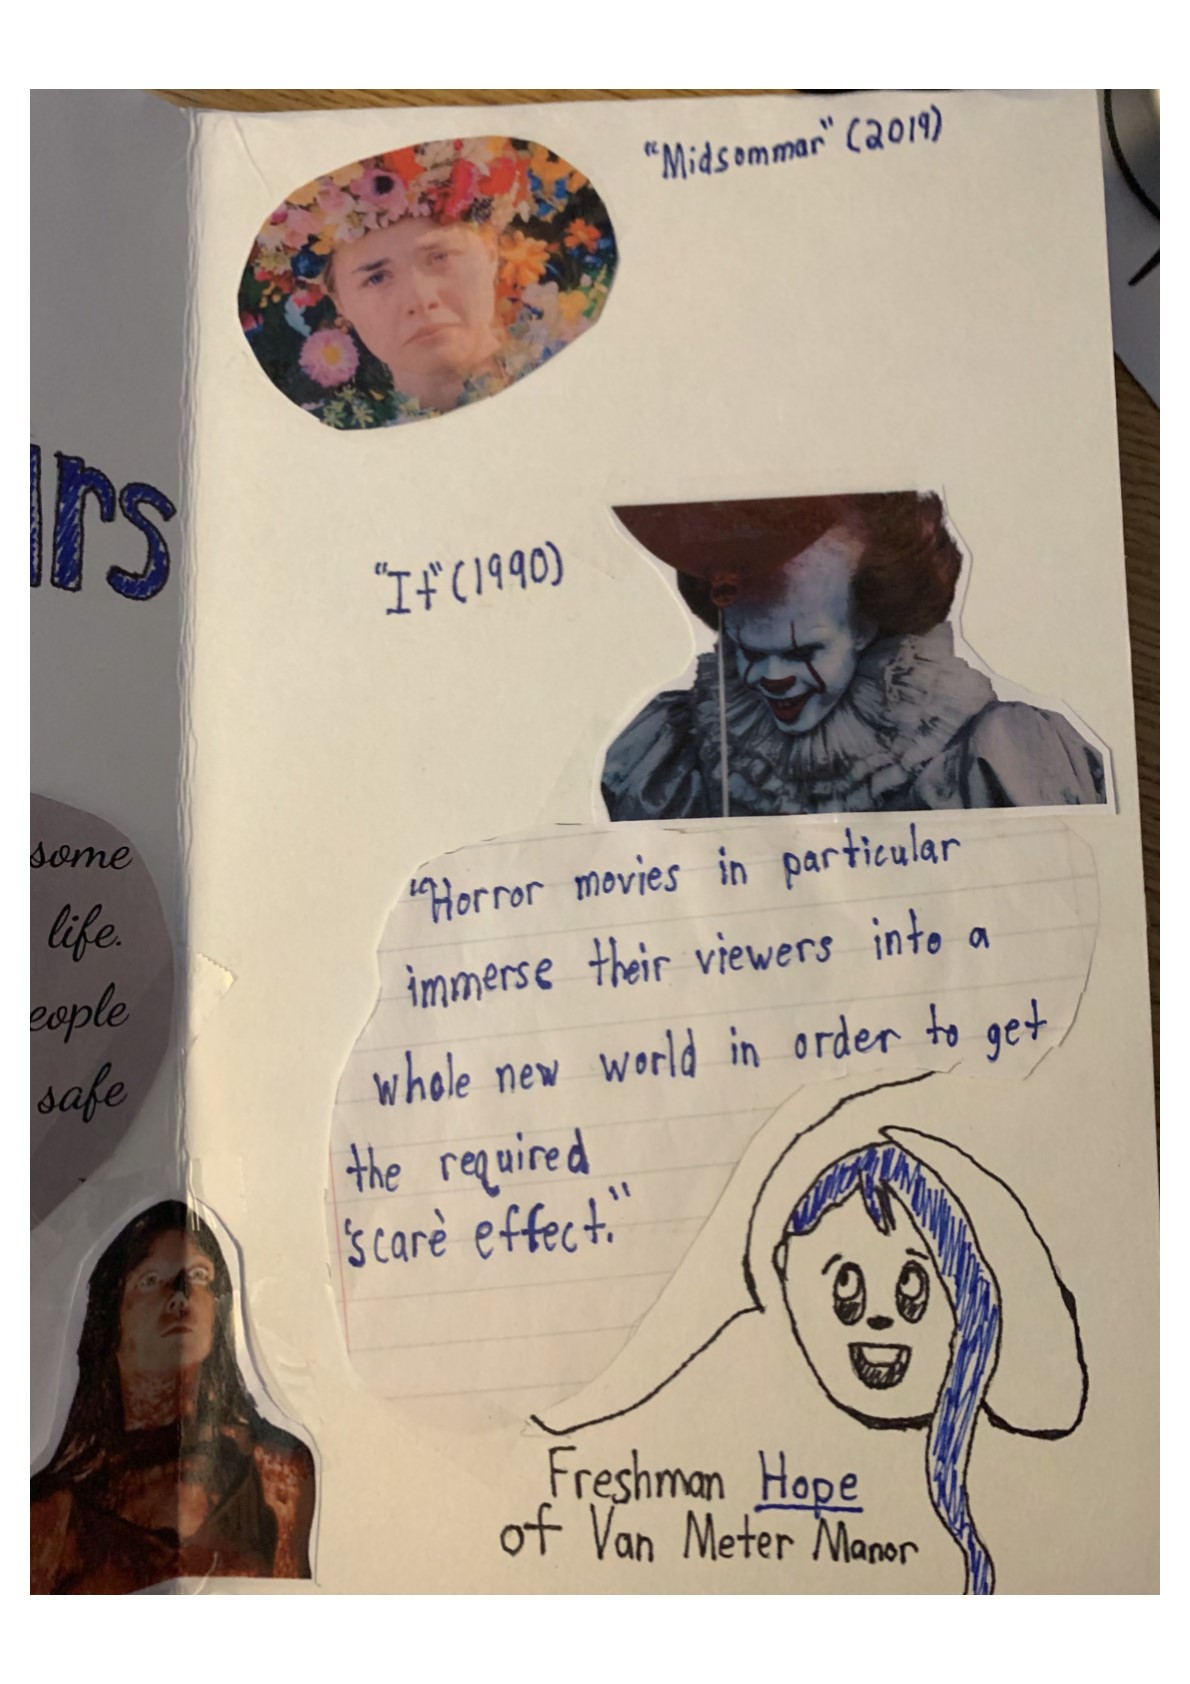 "Midsommar" (2019)
"It" (1990)
"Horror movies in particular
immerse their viewers into a
whole new world in order to get
the required
'scare' effect."
Freshman Hope
of Van Meter Manor
rs
some
life.
eople
safe